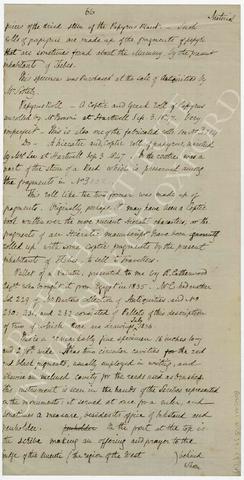 66
pieces of the dried stem of the Papyrus Plant. Such
rolls of papyrus are made up of the fragments of papyri
that are sometimes found about the Mummy, by the present
inhabitants of Thebes.
This specimen was purchased at the sale of Antiquities by
Mr. Sotheby
Papyrus Roll - A Coptic and Greek roll of Papyrus
unrolled by Mr Bonomi at Hartwell Sep 3. 1847. Very
imperfect. This is also one of the fabricated rolls
Do - A hieratic and Coptic roll of papyrus unrolled
by Dr Lee at Hartwell Sep 3 1847. In the centre was a
part of the stem of a Reed which is preserved among
the fragments in No
This roll like the two former was made up of
fragments. Originally, perhaps it may have been a Coptic
book written over the more ancient hieratic characters, or the
fragments of an Hieratic manuscript have been
rolled up with some Coptic fragments by the present
inhabitants of Thebes to sell to travellers.
Pallet of a Painter, presented to me by F. Catherwood
Esqre who brought it from Egypt in 1835.
Collection of Antiquities and No
230, 231, and 232 consisted of Pallets of this description
of two of which there are drawings
This is a remarkably fine specimen 16 inches long
and 2 1/8 wide. It has two circular cavities for the red
and black pigments, usually employed in writing, and
likewise an inclined cavity for the reeds used as brushes.
This instrument is seen in the hands of the Scribes represented
on the monuments: it served at once for a ruler, and
sometimes a measure, besides its office of inkstand and
penholder. On the front at the top is
the scribe making an offering and prayer to the
judge of the Amenti (the region of the West) behind
whom